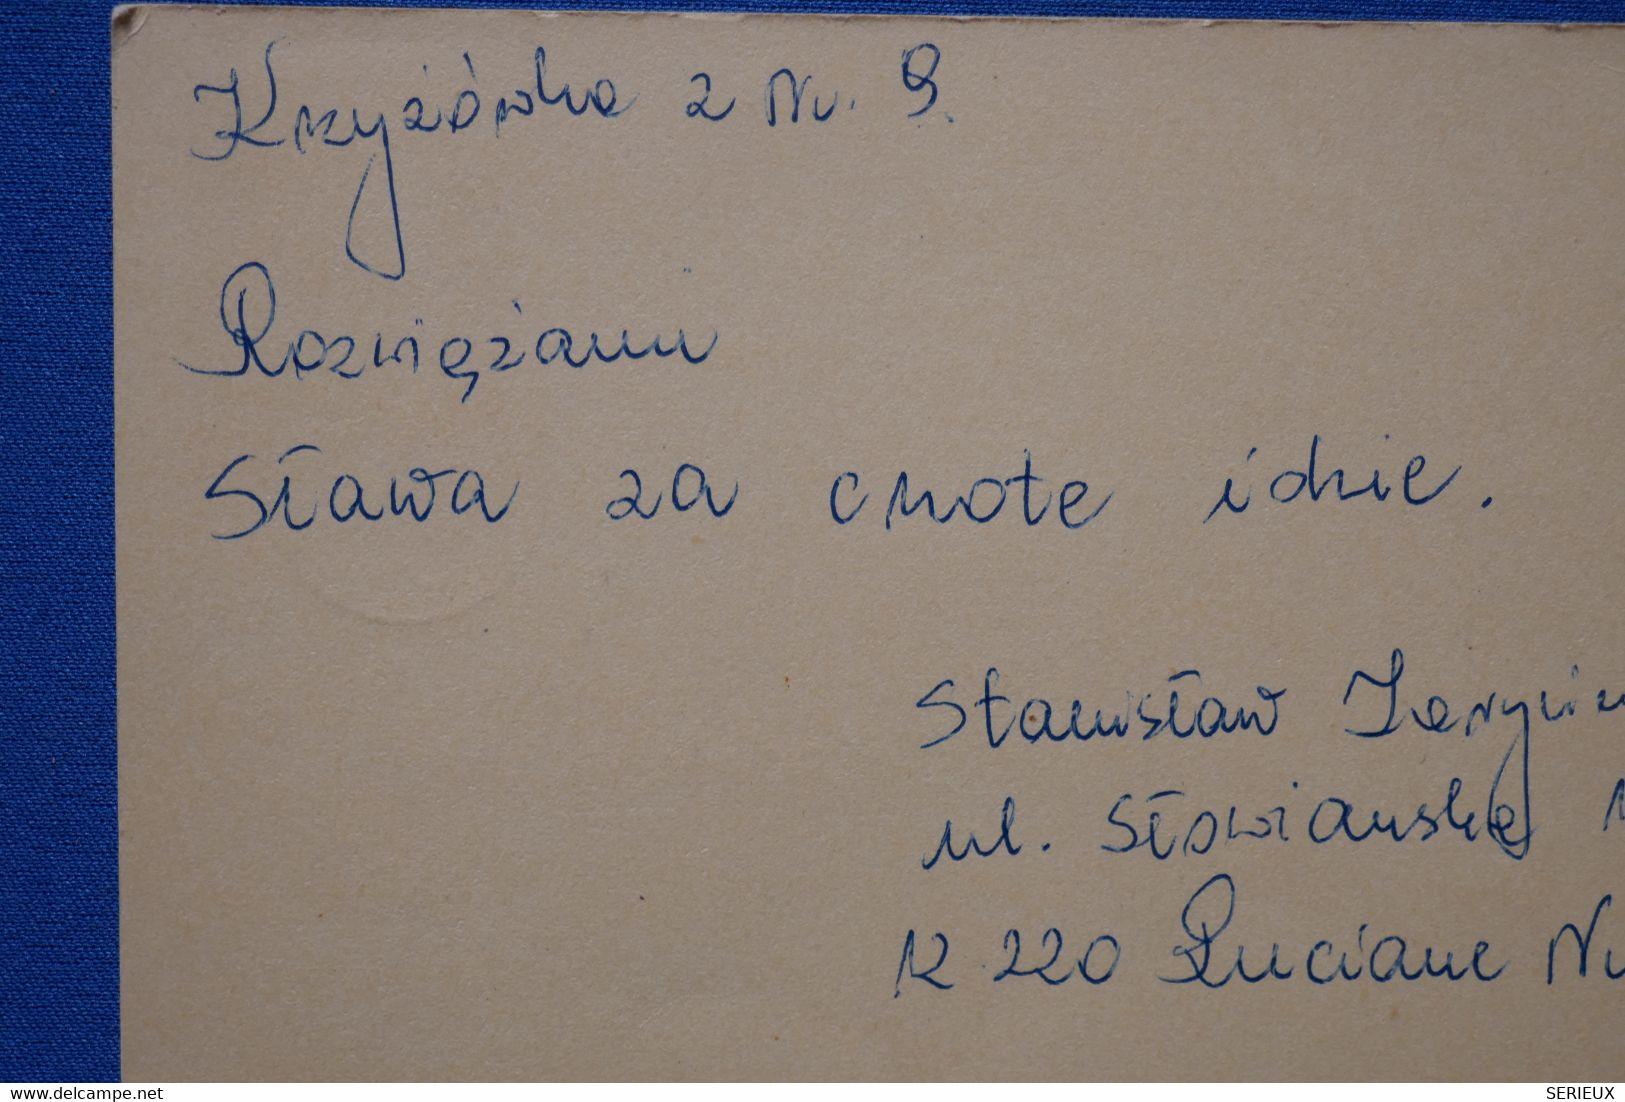 Krzyżówka z Nr. 9.
Rozwiężani
Sława za cnote idzie.
Stanisław
ul. Słowiańska
12 220 Ruciane
delcampe.net
SERIEUX